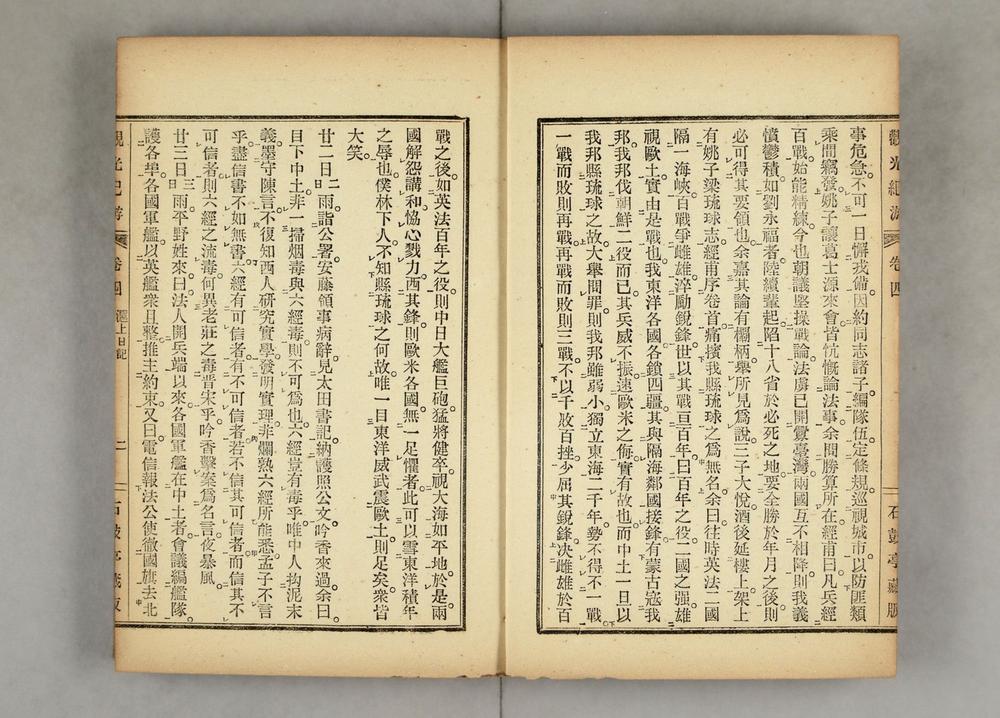 觀光紀游 卷四 石鼓亭藏版
事危急不可一日懈戎備因約同志諸子編隊伍定條規巡視城市以防匪類
乘間竊發姚子讓葛士源來會皆忼慨論法事余問勝算所在經甫曰凡兵經
百戰始能精練今也朝議堅操戰論法虜已開釁臺灣兩國互不相降則我義
憤鬱積如劉永福者陸續輩起陷十八省於必死之地要全勝於年月之後則
必可得其要領也余嘉其論有欛柄舉所見爲說三子大悅酒後延樓上架上
有姚子梁琉球志經甫序卷首痛擯我縣琉球之爲無名余曰往時英法二國
隔一海峽百戰爭雌雄淬勵銳鋒世以其戰亘百年曰百年之役二國之强雄
視歐土實由是戰也我東洋各國各鎖四疆其與隔海鄰國接鋒有蒙古寇我
邦我邦伐朝鮮二役而已其兵威不振速歐米之侮實有故也而中土一旦以
我邦縣琉球之故大舉問罪則我邦雖弱小獨立東海二千年勢不得不一戰
一戰而敗則再戰再戰而敗則三戰不以千敗百挫少屈其銳鋒决雌雄於百
戰之後如英法百年之役則中日大艦巨砲猛將健卒視大海如平地於是兩
國解怨講和恊心戮力西其鋒則歐米各國無一足懼者此可以雪東洋積年
之辱也僕林下人不知縣琉球之何故唯一目東洋威武震歐土則足矣衆皆
大笑
廿二日二日雨詣公署安藤領事病辭見太田書記納護照公文吟香來過余曰
目下中土非一掃烟毒與六經毒則不可爲也六經豈有毒乎唯中人拘泥末
義墨守陳言不復知西人研究實學發明實理非爛熟六經所能悉孟子不言
乎盡信書不如無書六經有可信者有不可信者若不信其可信者而信其不
可信者則六經之流毒何異老莊之毒晋宋乎吟香擊案爲名言夜暴風
廿三日三日雨平野姓來曰法人開兵端以來各國軍艦在中土者會議編艦隊
護各埠各國軍艦以英艦衆且整推主約束又曰電信報法公使徹國旗去北
觀光紀游 卷四 滬上日記 二 石鼓亭藏版